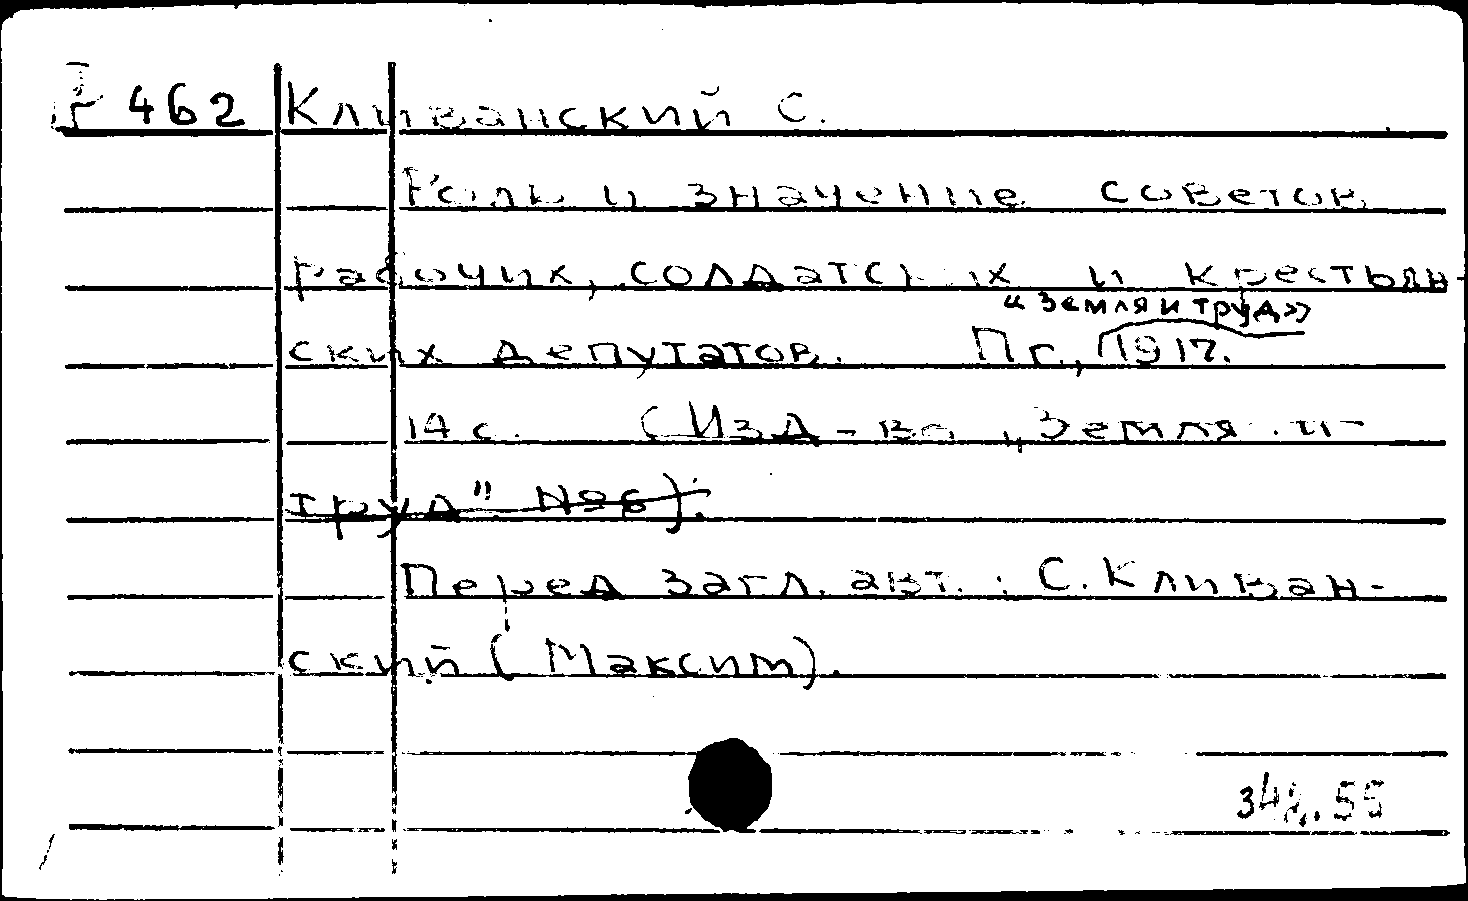 462 Кливанский С.
Роль и значение советов
рабочих, солдатских и крестьян-
«Земля и труд»
ских депутатов. Пг., 1917.
14 с. (Изд-во „Земля и
труд" №6).
Перед загл. авт.: С. Кливан-
ский (Максим).